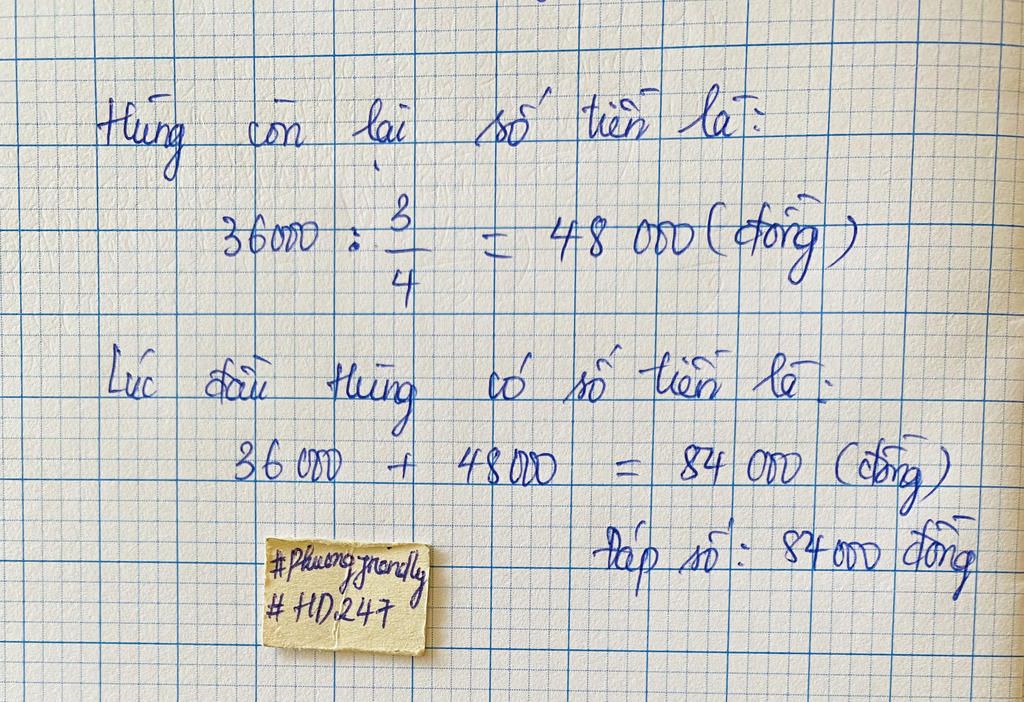 Hùng còn lại số tiền là:
36000 : 3/4 = 48 000 (đồng)
Lúc đầu Hùng có số tiền là:
36 000 + 48000 = 84 000 (đồng)
Đáp số: 84000 đồng
#Phuongfriendly
# HD.247